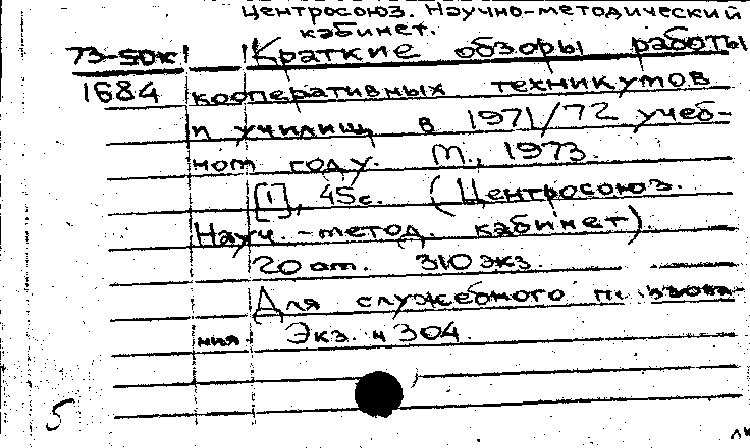 Центросоюз. Научно-методический
кабинет.
73-50к Краткие обзоры работы
1684 кооперативных техникумов
и училищ в 1971/72 учеб-
ном году. М., 1973.
[1], 45с. (Центросоюз.
Науч.-метод. кабинет).
20 от. 310 экз.
Для служебного
ния. Экз. № 304.
5